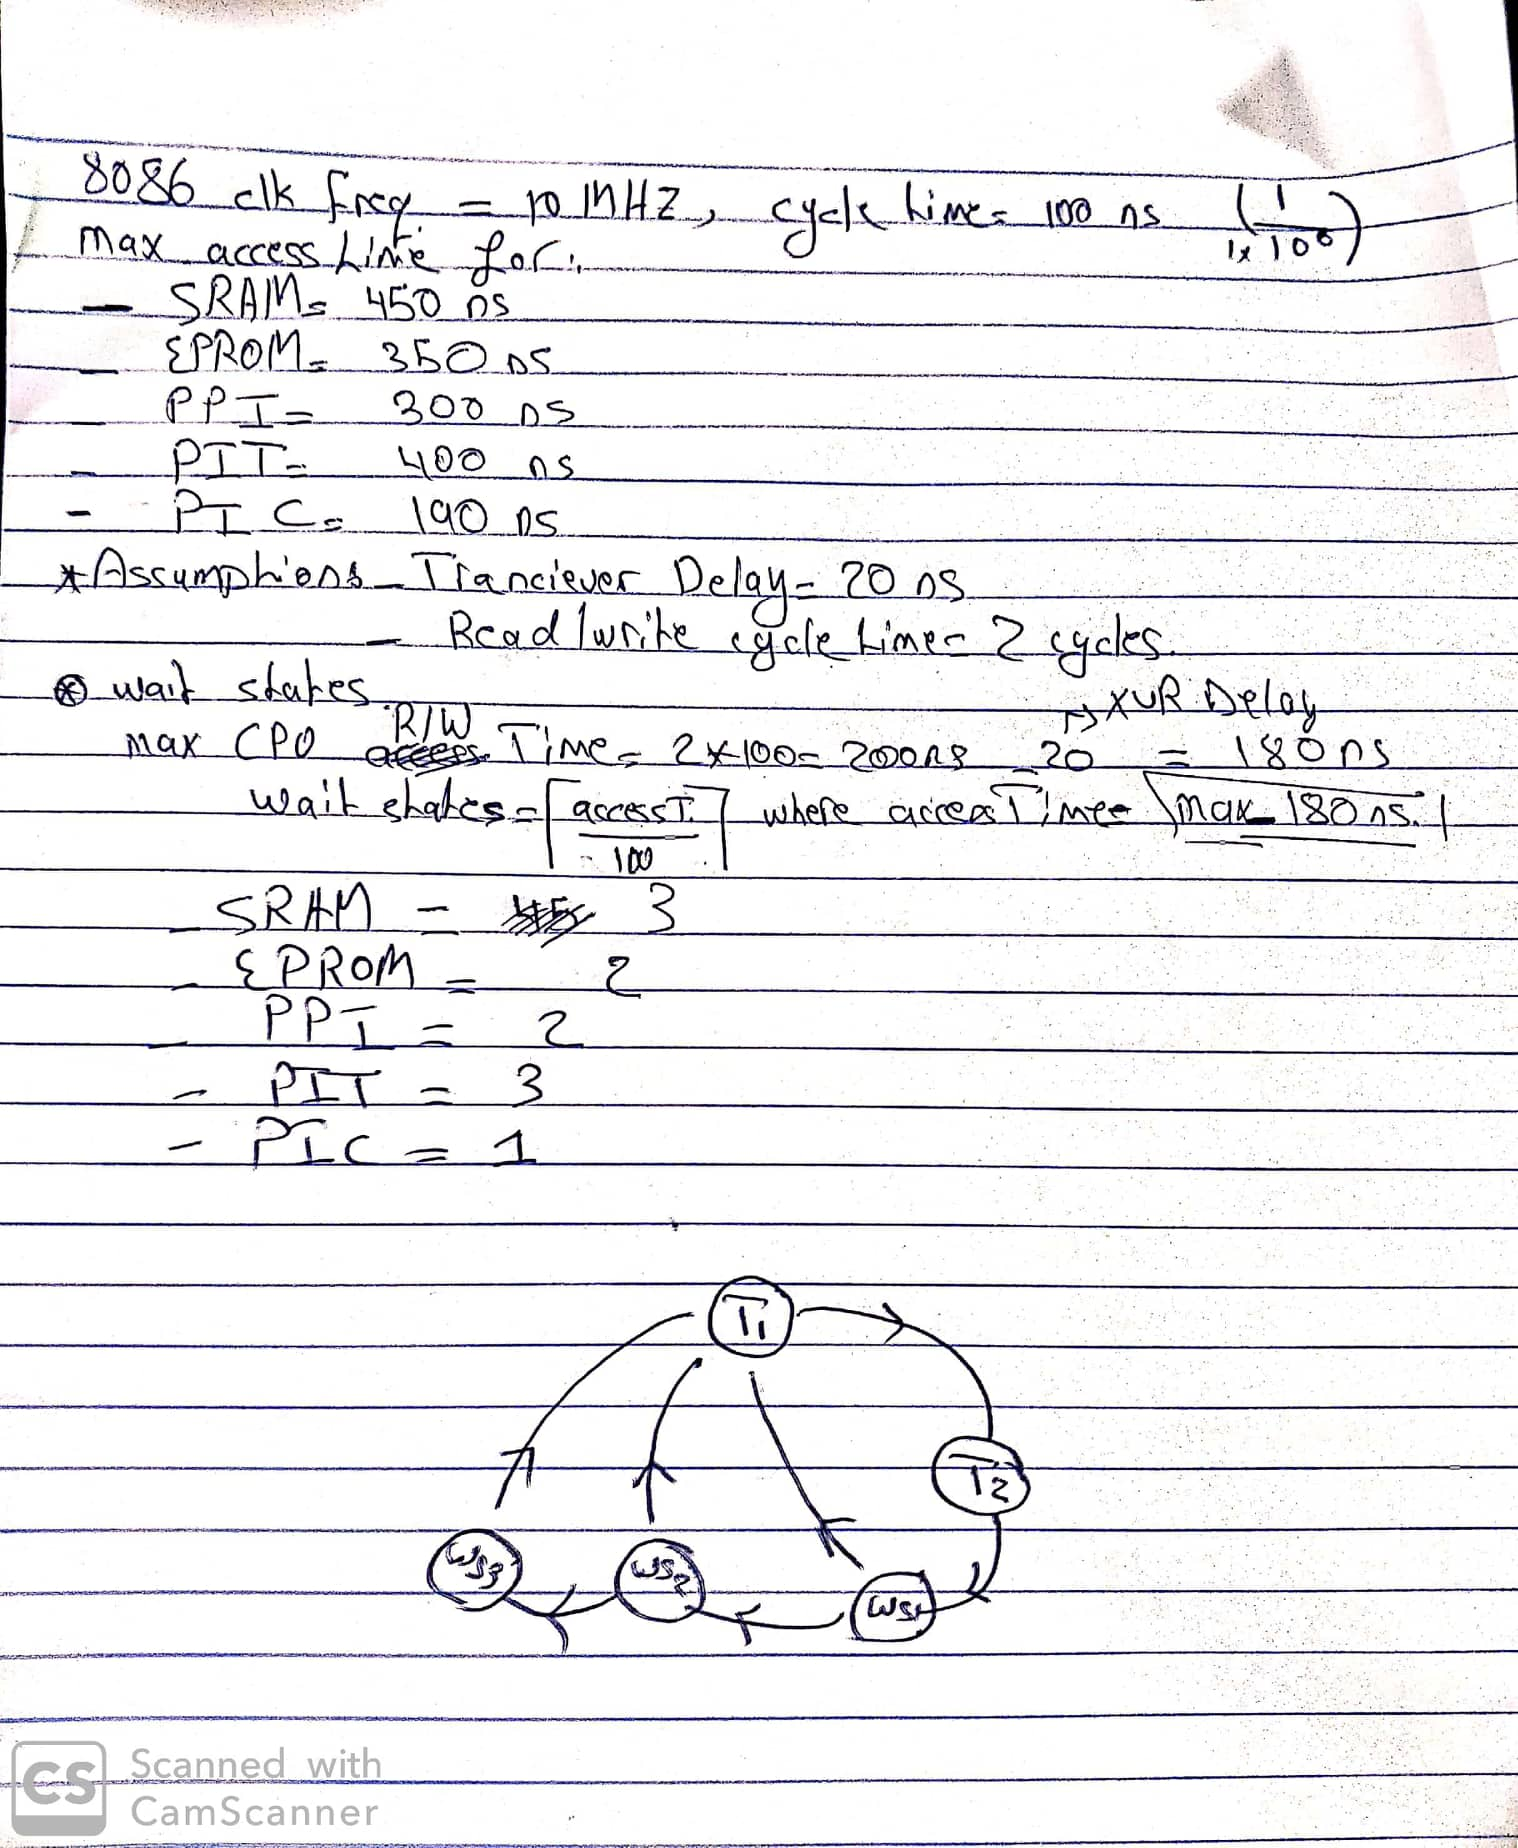 8086 clk freq. = 10 MHZ, cycle time = 100 ns (1/1x10⁰)
max access time for:
- SRAM = 450 ns
- EPROM = 350 ns
- PPI = 300 ns
- PIT = 400 ns
- PIC = 190 ns
* Assumptions - Tranciever Delay = 20 ns
- Read/write cycle time = 2 cycles.
⊛ wait states
→ XUR Delay
max CPU R/W Time = 2*100 = 200ns - 20 = 180ns
wait states = ⌈access T./100⌉ where access Time = max - 180 ns.
- SRAM = 3
- EPROM = 2
- PPI = 2
- PIT = 3
- PIC = 1
T1
T2
WS3 WS2 WS1
CS Scanned with
CamScanner